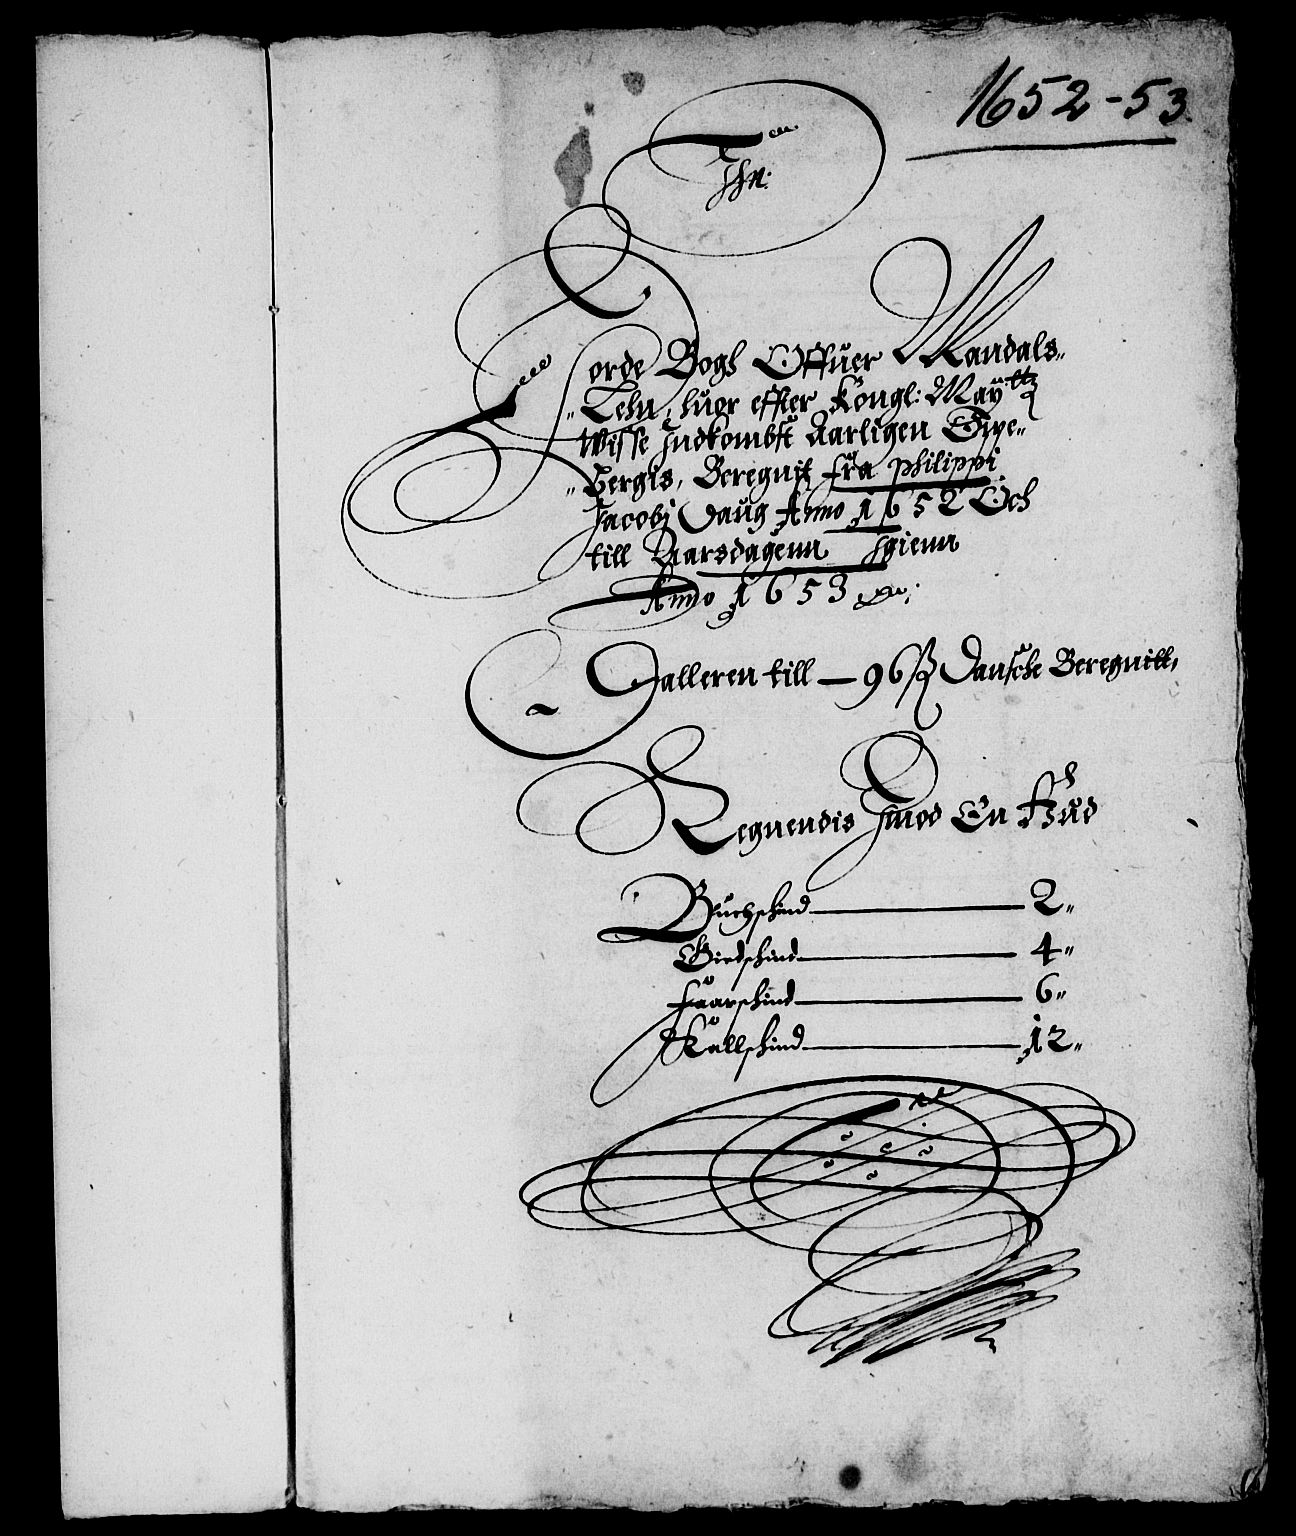 1652-53.
Jhn:
Jorde Bogh Offuer Mandals„
„Lehn, huor effter Kongl: May:tz
Wisse Jndkombst Aarligen Ope„
„bergis, Beregnit fra Philippi
Jacobj Daug Anno 1652 Och
till Aarsdagenn Jgienn
Anno 1653
Dalleren till — 96 ß Danske Beregnitt,
Regnendis Jmod En Hud
Buchskind — 2„
Giedskind — 4„
Faarskind — 6„
Kallskind — 12„